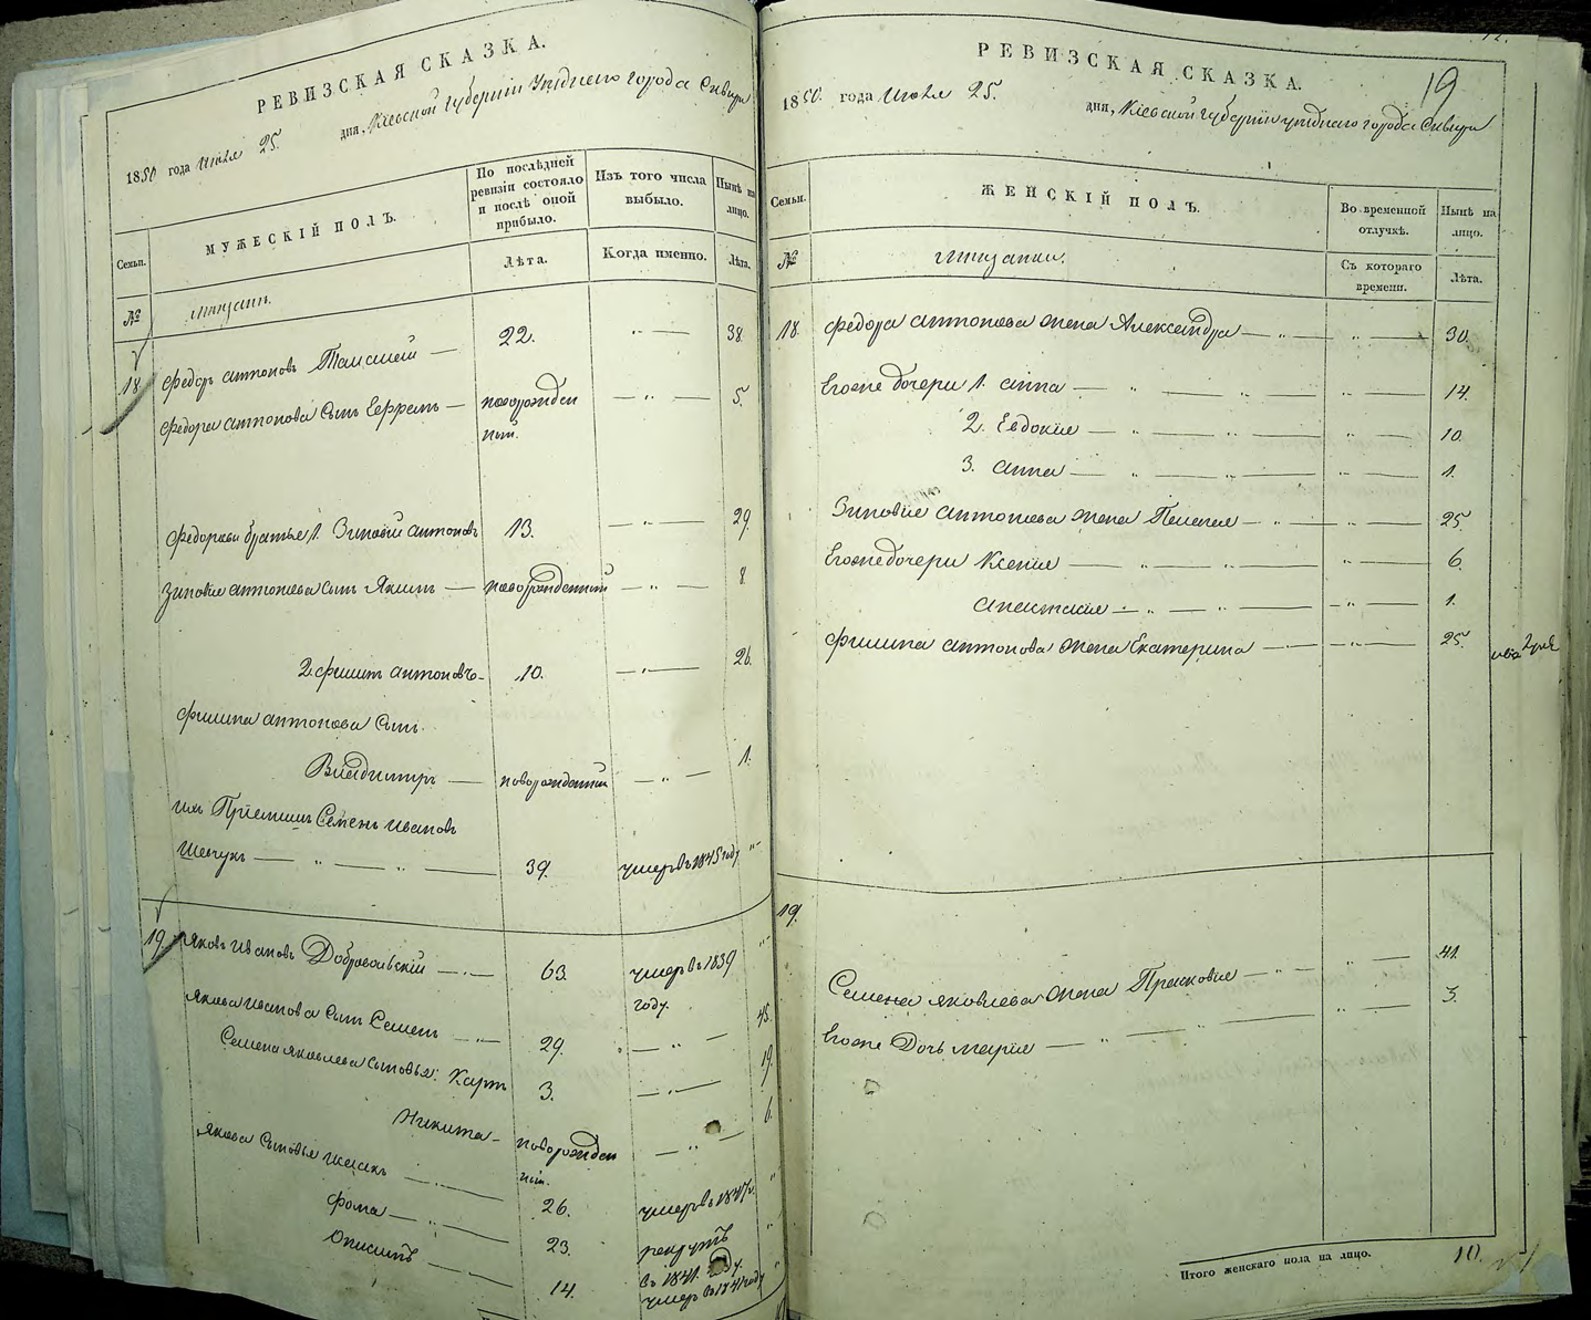 РЕВИЗСКАЯ СКАЗКА.
1850 года Июля 25. дня, Кіевской Губерніи уѣзднаго города Сквири
Семьи. МУЖЕСКІЙ ПОЛЪ. По послѣдней ревизіи состояло и послѣ оной прибыло. Изъ того числа выбыло. Нынѣ на лицо.
№ Лѣта. Когда именно. Лѣта.
мещане.
18 Федоръ Антоновъ 22. " — 38
Федора Антонова сынъ Ефремъ — новорожден — " — 5.
ный.
Федоровы братья 1. Зиновій Антоновъ 13. — " — 29.
Зиновія Антонова сынъ Якимъ — новорожденный — " — 8
2. Филипъ Антоновъ - 10. — " — 26.
Филипа Антонова сынъ
Владимиръ — новорожденный — " — 1.
ихъ Пріемышъ Семенъ Ивановъ
Шевчукъ — " — " — 39. умеръ въ 1845 году "
19. Яковъ Ивановъ Добровольскій — " — 63. умеръ въ 1839 "
году.
Якова Иванова сынъ Семенъ — " — 29. " — " — 45.
Семена Яковлева сыновья: Карпъ 3. — " — 19.
Никита - новорожден — " — 6.
ный.
Якова сыновья Исакъ — " — 26. умеръ въ 1847 г. "
Фома — " — 23. рекрутъ "
въ 1841. году.
Онисимъ — " — 14. умеръ въ 1841 году "
РЕВИЗСКАЯ СКАЗКА.
19
1850. года Июля 25. дня, Кіевской Губерніи уѣзднаго города Сквири
Семьи. ЖЕНСКІЙ ПОЛЪ. Во временной отлучкѣ. Нынѣ на лицо.
№ Съ котораго времени. Лѣта.
мещанки.
18. Федора Антонова жена Александра — " — " — 30.
Егоже дочери 1. Анна — " — " — " — 14.
2. Евдокія — " — " — " — 10.
3. Анна — " — " — " — 1.
Зиновія Антонова жена Пелагея — " — " — 25.
Егоже дочери Ксенія — " — " — " — 6.
Анастасія — " — " — " — 1.
Филипа Антонова жена Екатерина — " — " — 25.
19.
Семена Яковлева жена Прасковія — " — " — 41.
Егоже Дочь Марія — " — " — " — 3.
Итого женскаго пола на лицо. 10.